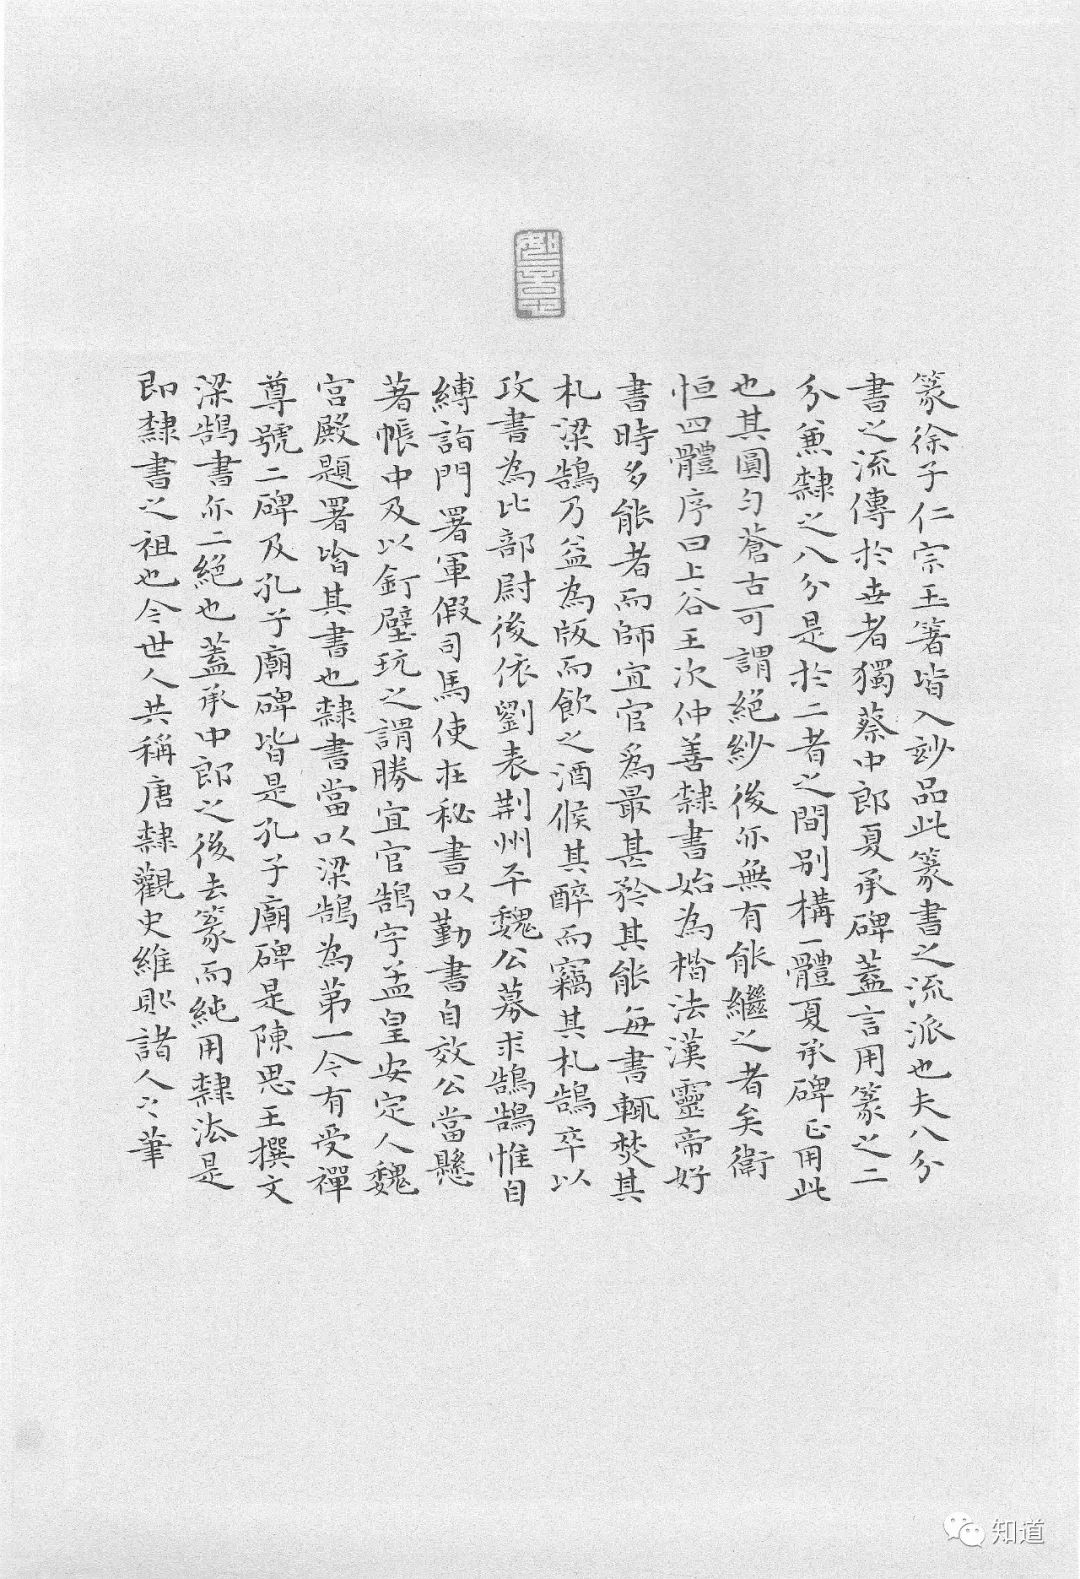 篆徐子仁宗玉箸皆入玅品此篆書之流派也夫八分
書之流傳於世者獨蔡中郎夏承碑蓋言用篆之二
分兼隸之八分是於二者之間別構一體夏承碑正用此
也其圓勻蒼古可謂絕紗後亦無有能繼之者矣衛
恒四體序曰上谷王次仲善隸書始為楷法漢靈帝好
書時多能者而師宜官為最甚矜其能每書輒焚其
札梁鵠乃益為版而飲之酒候其醉而竊其札鵠卒以
攻書為比部尉後依劉表荆州平魏公募求鵠鵠惟自
縛詣門署軍假司馬使在秘書以勤書自效公當懸
著帳中及以釘壁玩之謂勝宜官鵠字孟皇安定人魏
宮殿題署皆其書也隸書當以梁鵠為第一今有受禪
尊號二碑及孔子廟碑皆是孔子廟碑是陳思王撰文
梁鵠書亦二絕也蓋承中郎之後去篆而純用隸法是
即隸書之祖也今世人共稱唐隸觀史維則諸人之筆
知道